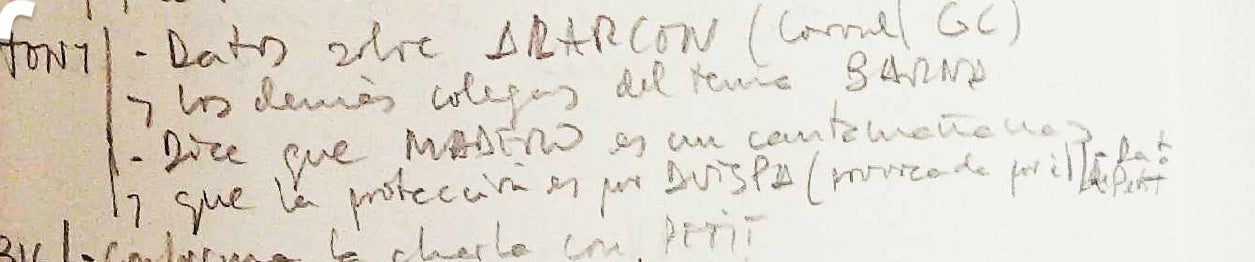 FONT - Datos sobre ALARCON (Coronel GC)
y los demás colegas del tema BARNA
- Dice que MADERO es un cantamañanas
y que la protección es por AVISPA (provocada por él)
- Confirma la charla con PETIT